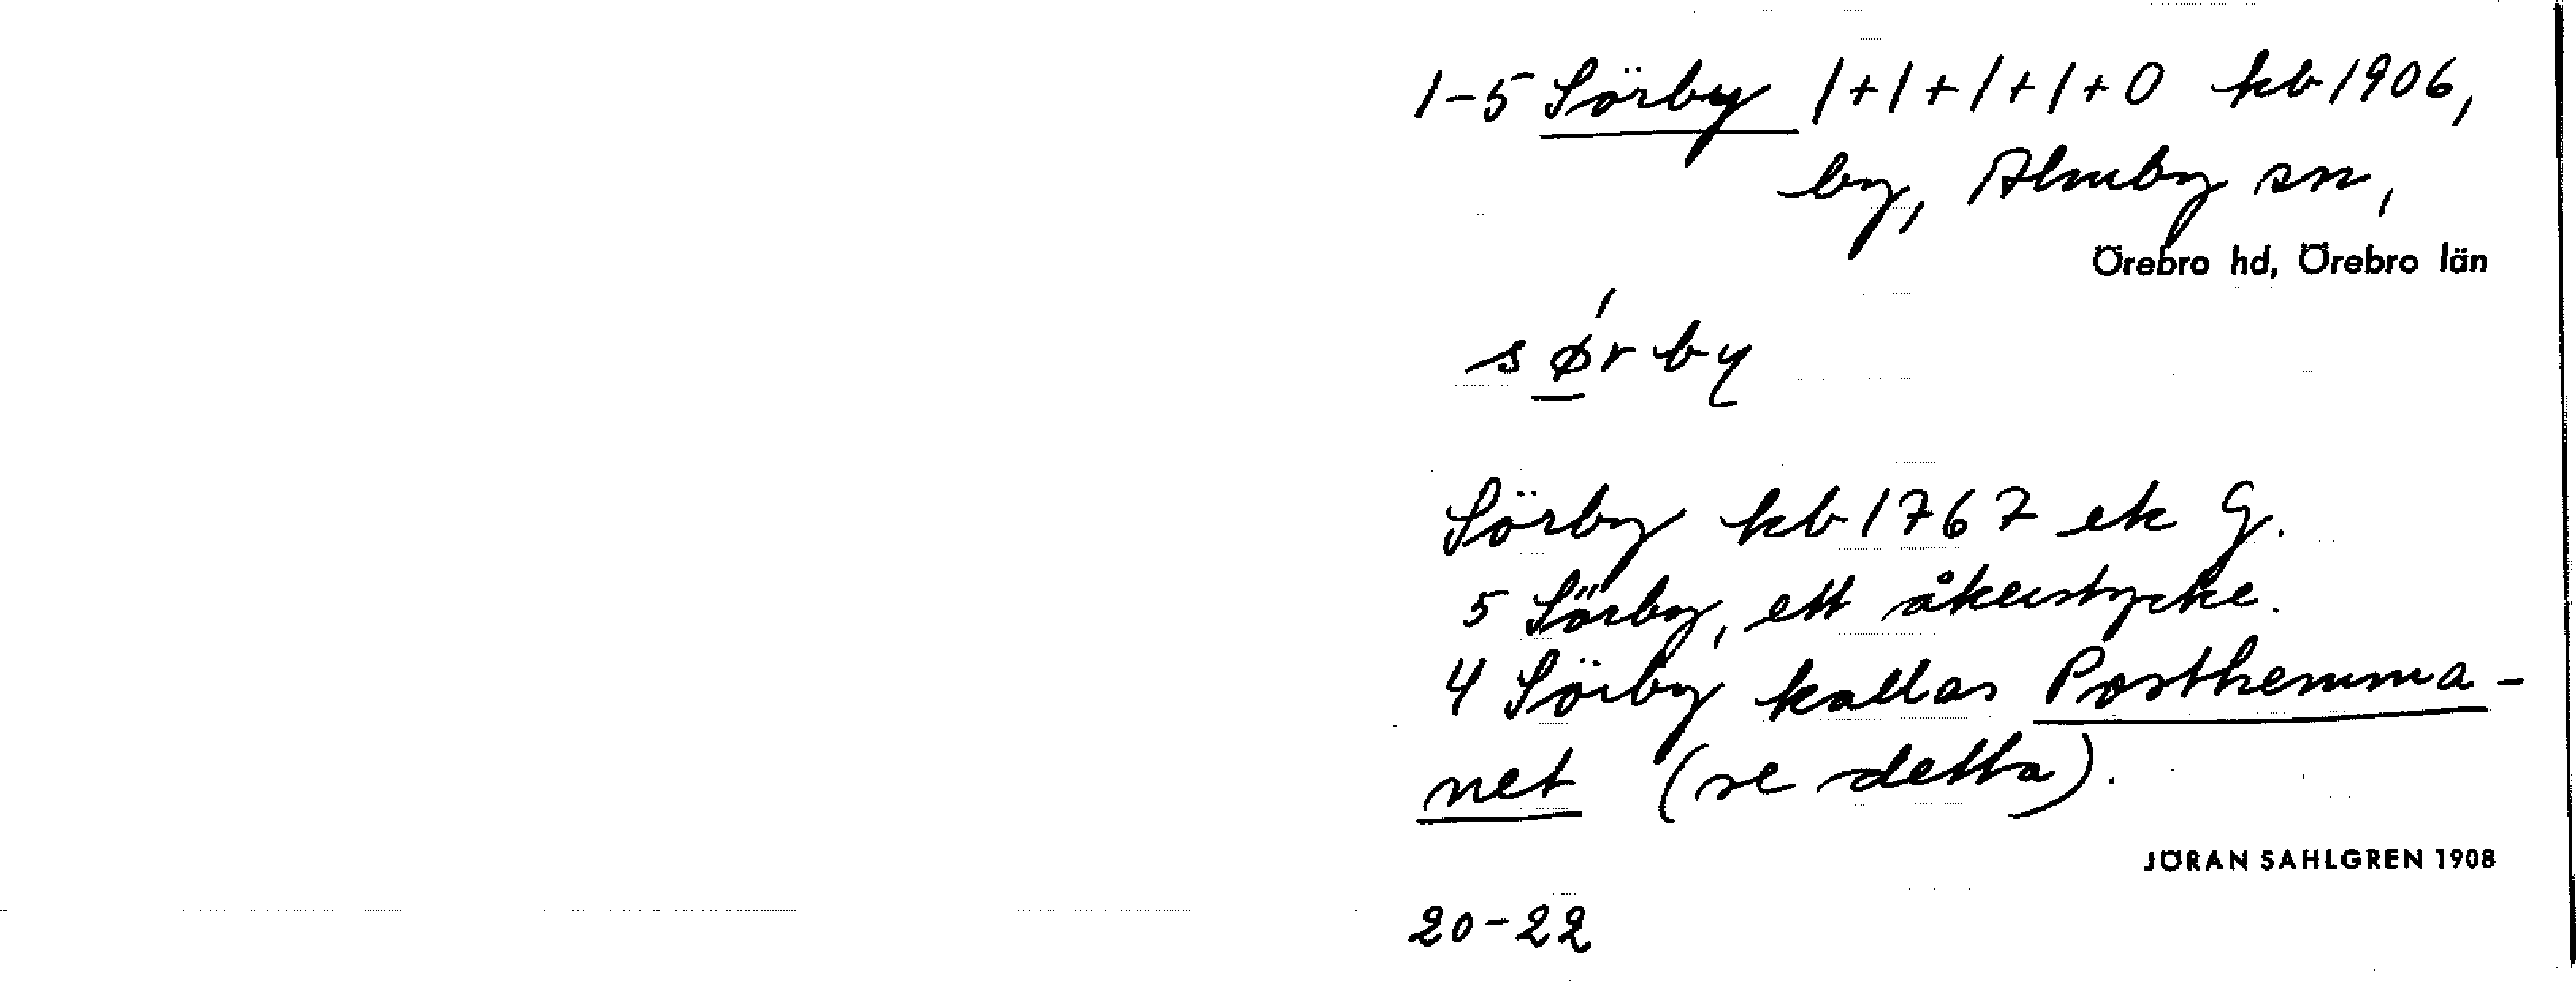 1-5 Sörby 1+1+1+1+0 kb 1906,
by, Almby sn,
Örebro hd, Örebro län
sǿrby
Sörby kb 1767 ek G.
5 Sörby, ett åkerstycke.
4 Sörby kallas Posthemma-
net (se detta).
JÖRAN SAHLGREN 1908
20-22